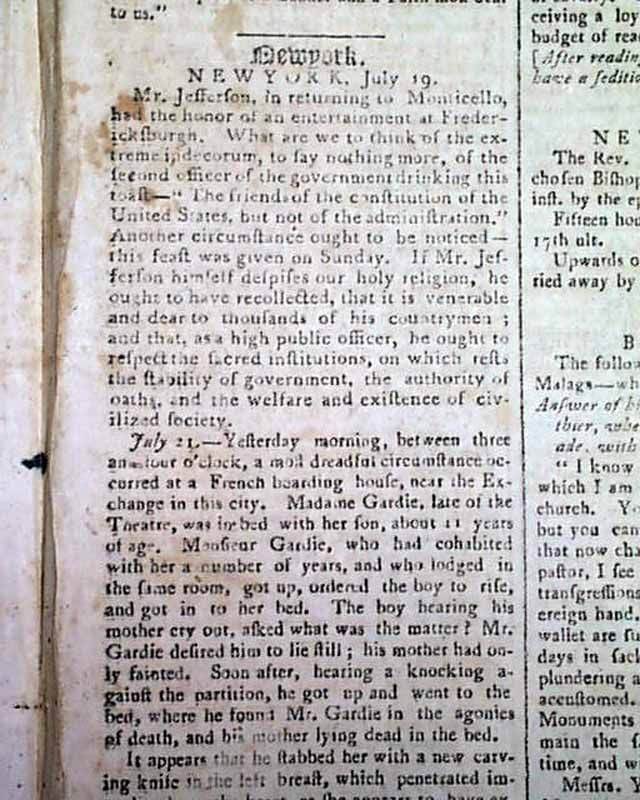 to us."
Newyork.
NEWYORK, July 19.
Mr. Jefferson, in returning to Monticello,
had the honor of an entertainment at Freder-
icksburgh. What are we to think of the ex-
treme indecorum, to say nothing more, of the
second officer of the government drinking this
toast—" The friends of the constitution of the
United States, but not of the administration."
Another circumstance ought to be noticed—
this feast was given on Sunday. If Mr. Jef-
ferson himself despises our holy religion, he
ought to have recollected, that it is venerable
and dear to thousands of his countrymen ;
and that, as a high public officer, he ought to
respect the sacred institutions, on which rests
the stability of government, the authority of
oaths, and the welfare and existence of civ-
ilized society.
July 21.—Yesterday morning, between three
and four o'clock, a most dreadful circumstance oc-
curred at a French boarding house, near the Ex-
change in this city. Madame Gardie, late of the
Theatre, was in bed with her son, about 11 years
of age. Monsieur Gardie, who had cohabited
with her a number of years, and who lodged in
the same room, got up, ordered the boy to rise,
and got in to her bed. The boy hearing his
mother cry out, asked what was the matter ? Mr.
Gardie desired him to lie still ; his mother had on-
ly fainted. Soon after, hearing a knocking a-
gainst the partition, he got up and went to the
bed, where he found Mr. Gardie in the agonies
of death, and his mother lying dead in the bed.
It appears that he stabbed her with a new carv-
ing knife in the left breast, which penetrated im-
ceiving a loy
budget of rea
[After readin
have a seditio
NE
The Rev.
chosen Bishop
inst. by the ep
Fifteen hou
17th ult.
Upwards o
ried away by
B
The follow
Malaga—wh
Answer of h
thier, whe
ade, with
" I know
which I am
church. Yo
but you can
that now cha
pastor, I see
transgressions
ereign hand.
wallet are fu
days in sack
plundering a
accustomed.
Monuments
main the s
time, and wi
Messrs. Y